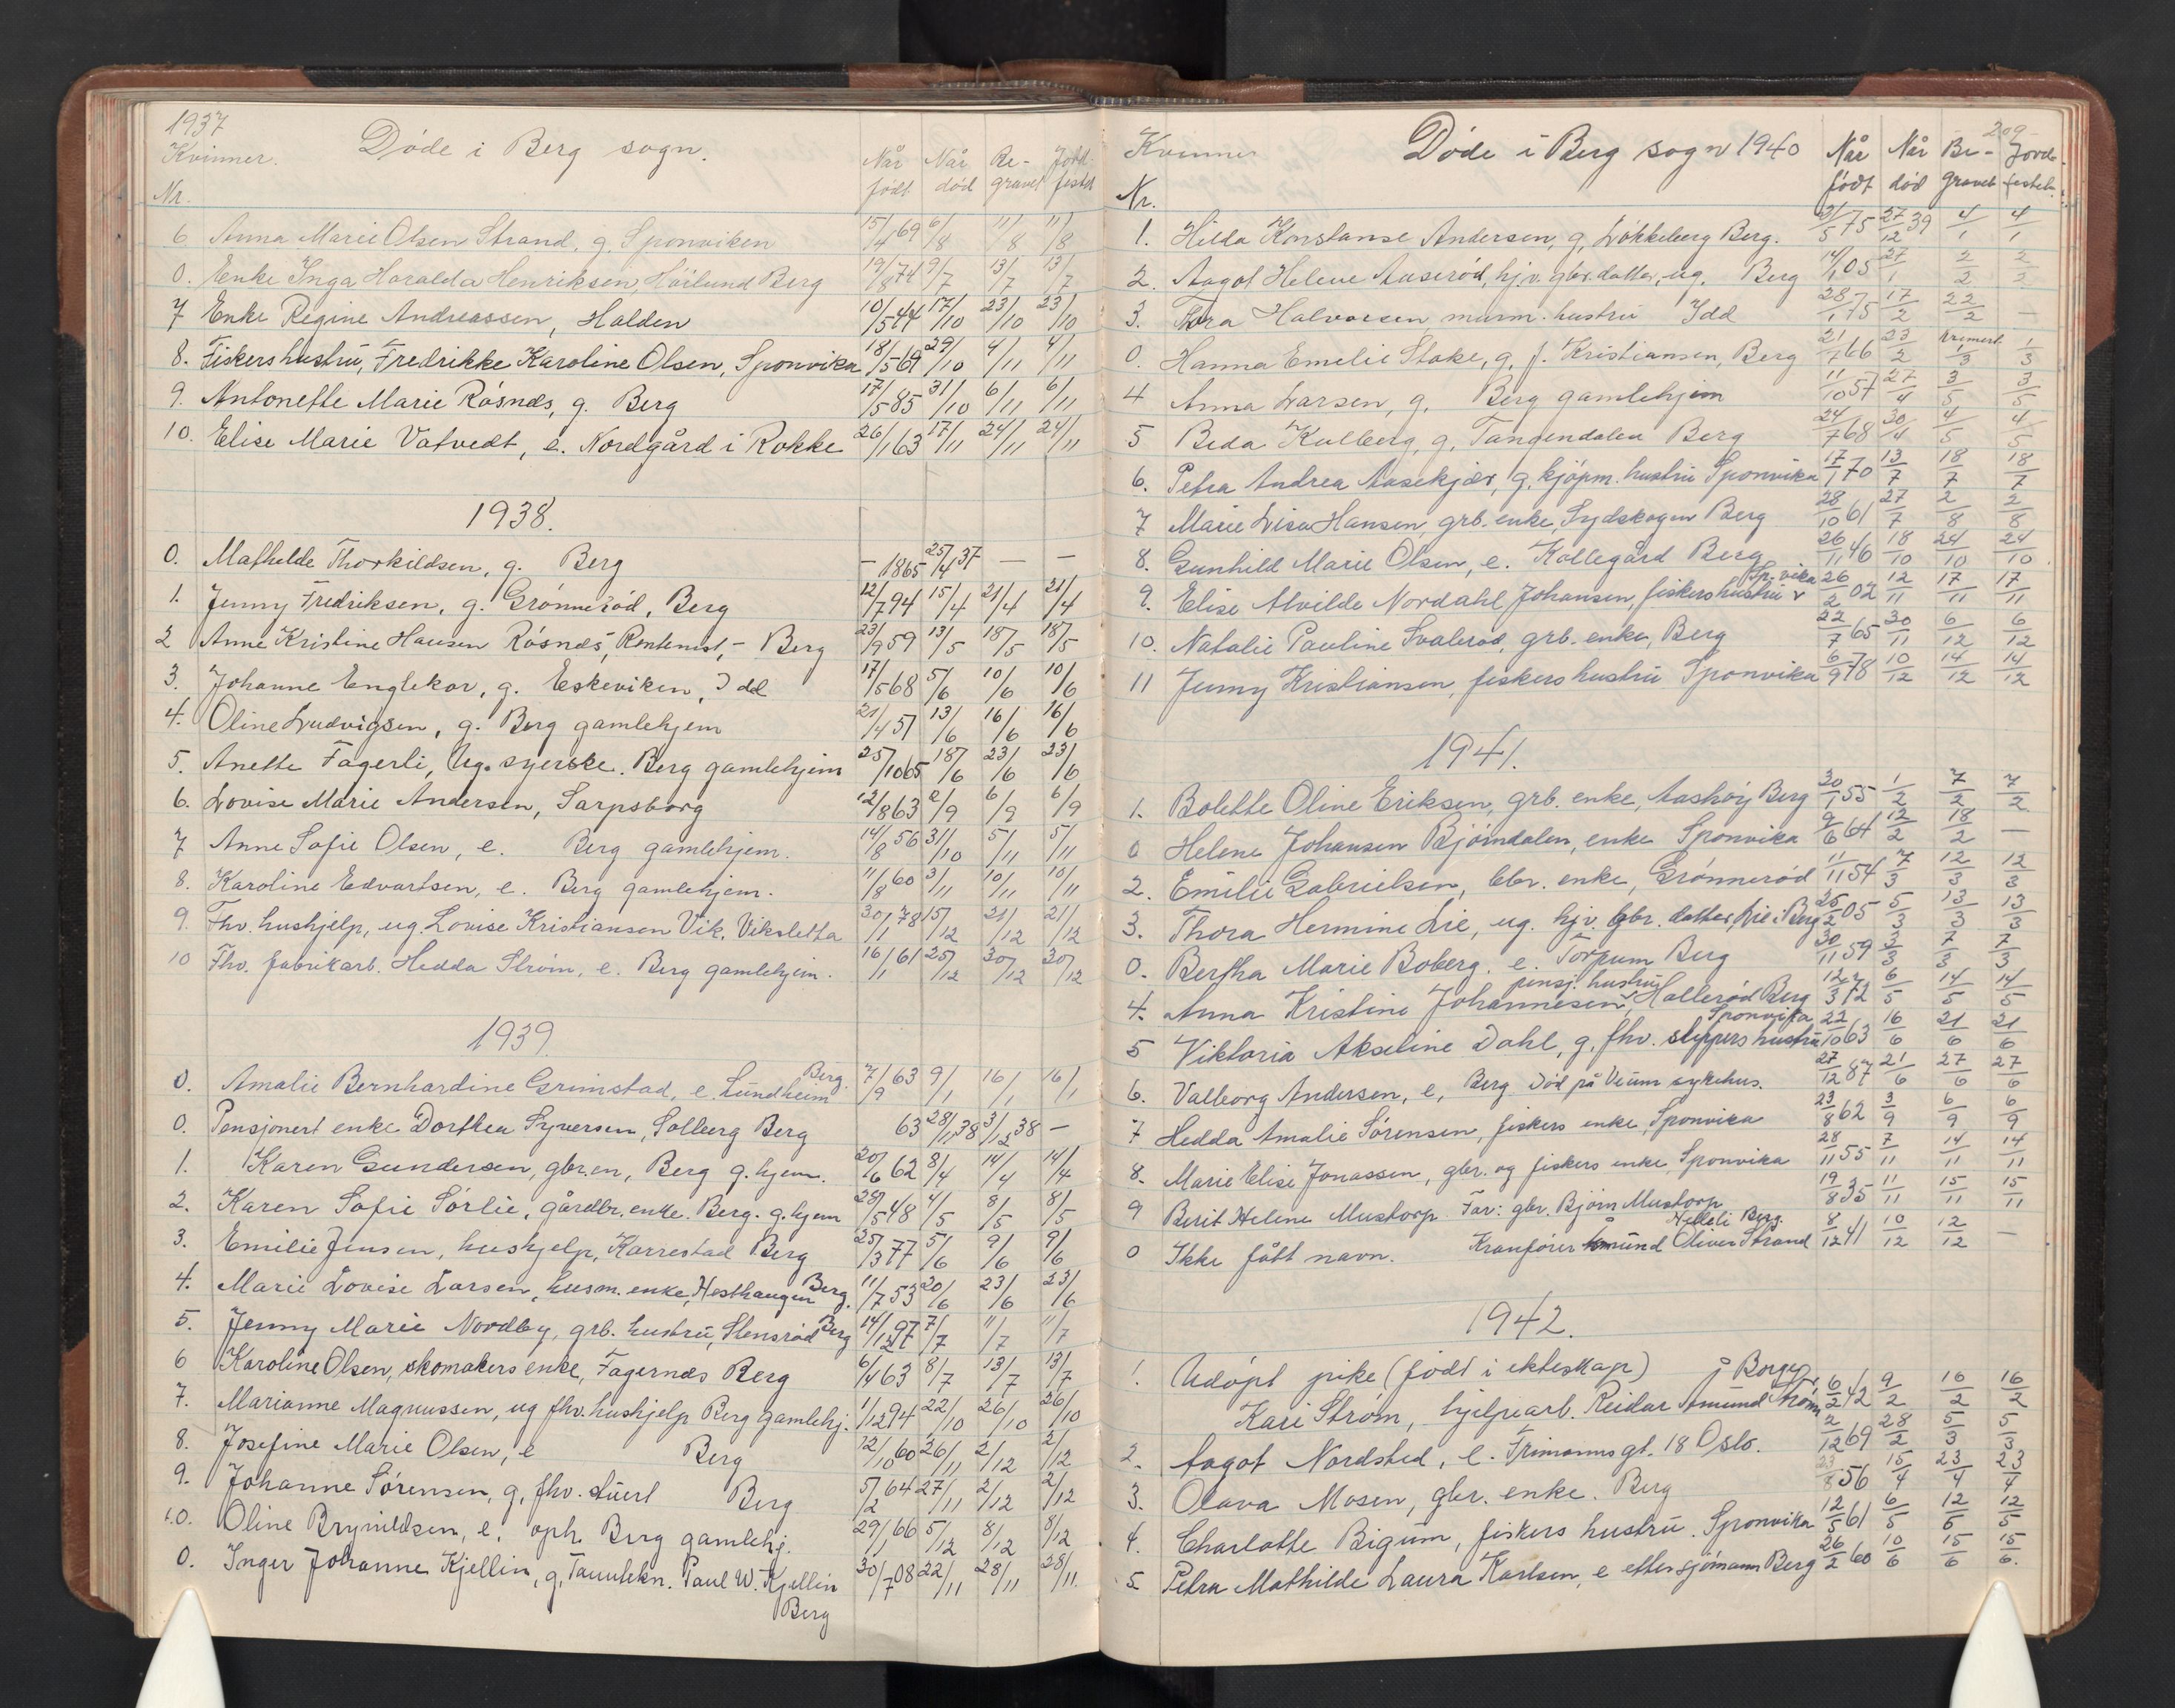 1937
Kvinner. Døde i Berg sogn. Når født Når død Be-gravet Jord-festet
Nr.
6 Anna Marie Olsen Strand, g. Sponviken 15/4 69 6/8 11/8 11/8
0. Enke Inga Haralda Henriksen, Høilund Berg 19/8 74 9/7 13/7 13/7
7 Enke Regine Andreassen, Halden 10/5 44 17/10 23/10 23/10
8. Fiskers hustru, Fredrikke Karoline Olsen, Sponvika 18/5 69 29/10 4/11 4/11
9. Antonette Marie Røsnæs, g. Berg 17/5 85 31/10 6/11 6/11
10. Elise Marie Vatvedt, e. Nordgård i Rokke 26/1 63 17/11 24/11 24/11
1938.
0. Mathilde Thorkildsen, g. Berg — 1865 25/4 37 — —
1. Jenny Fredriksen, g. Grønnerød, Berg 12/7 94 15/4 21/4 21/4
2 Anne Kristine Hansen Røsnes, Rentenist, - Berg 23/9 59 13/5 18/5 18/5
3. Johanne Englekor, g. Eskeviken, Idd 17/5 68 5/6 10/6 10/6
4. Oline Ludvigsen, g. Berg gamlehjem 21/4 51 13/6 16/6 16/6
5. Anette Fagerli, Ug. syerske. Berg gamlehjem 25/10 65 18/6 23/6 23/6
6. Lovise Marie Andersen, Sarpsborg 12/8 63 2/9 6/9 6/9
7 Anne Sofie Olsen, e. Berg gamlehjem. 14/8 56 31/10 5/11 5/11
8. Karoline Edvartsen, e. Berg gamlehjem. 11/8 60 3/11 10/11 10/11
9. Fhv. hushjelp, ug. Lovise Kristiansen Vik, Viksletta 30/1 78 15/12 21/12 21/12
10 Fhv. fabrikarb. Hedda Strøm, e. Berg gamlehjem. 16/1 61 25/12 30/12 30/12
1939.
0. Amalie Bernhardine Grimstad, e. Sundheim Berg. 7/9 63 9/1 16/1 16/1
0. Pensjonert enke Dorthea Syversen, Solberg Berg 63 28/11 38 3/12 38 —
1. Karen Gundersen, gbr.en, Berg g. hjem. 20/6 62 8/4 14/4 14/4
2. Karen Sofie Sørlie, gårdbr. enke. Berg. g. hjem 28/5 48 4/5 8/5 8/5
3. Emilie Jensen, hushjelp, Karrestad Berg 25/3 77 5/6 9/6 9/6
4. Marie Lovise Larsen, husm. enke, Hesthaugen Berg. 11/7 53 20/6 23/6 23/6
5. Jenny Marie Nordby, grb. hustru, Stensrød Berg 14/12 97 7/7 11/7 11/7
6 Karoline Olsen, skomakers enke, Fagernæs Berg 6/4 63 8/7 13/7 13/7
7. Marianne Magnussen, ug fhv. hushjelp Berg gamlehj. 1/12 94 22/10 26/10 26/10
8. Josefine Marie Olsen, e Berg 12/10 60 26/11 2/12 2/12
9. Johanne Sørensen, g, fhv. stuert Berg 5/2 64 27/11 2/12 2/12
10. Oline Brynildsen, e. oph. Berg gamlehj. 29/1 66 5/12 8/12 8/12
0. Inger Johanne Kjellin, g, Tannlekn. Paul W. Kjellin 30/7 08 22/11 28/11 28/11
Berg
209
Kvinner Døde i Berg sogn 1940 Når født Når død Be-gravet Jord-festet
Nr.
1. Hilda Konstanse Andersen, g, Løkkeberg Berg. 21/5 75 27/12 39 4/1 4/1
2. Aagot Helene Auserød, hj.v. gbr. datter, ug. Berg 14/1 05 27/1 2/2 2/2
3. Thora Halvorsen, murm. hustru Idd 28/1 75 17/2 22/2 —
0. Hanna Emelie Stake, g, f. Kristiansen, Berg 21/7 66 23/2 kremert 1/3 1/3
4 Anna Larsen, g, Berg gamlehjem 11/10 57 27/4 3/5 3/5
5 Beda Kulberg, g, Tangendalen Berg 24/7 68 30/4 4/5 4/5
6. Petra Andrea Aasekjær, g, kjøpm. hustru Sponvika 17/1 70 13/7 18/7 18/7
7 Marie Lisa Hansen, grb. enke, Sydskogen Berg 28/10 61 27/7 2/8 2/8
8. Gunhild Marie Olsen, e. Kollegård Berg 26/11 46 18/10 24/10 24/10
9. Elise Alvilde Nordahl Johansen, fiskers hustru Sp.vika 26/2 02 12/11 17/11 17/11
10. Natalie Pauline Svalerød, grb. enke, Berg 22/7 65 30/11 6/12 6/12
11 Jenny Kristiansen, fiskers hustru Sponvika 6/9 78 10/12 14/12 14/12
1941.
1. Bolette Oline Eriksen, grb. enke, Aashøy Berg 30/1 55 1/2 7/2 7/2
0 Helene Johansen Bjørndalen, enke Sponvika 9/6 64 12/2 18/2 —
2. Emilie Gabrielsen, bbr. enke, Grønnerød 11/11 54 7/3 12/3 12/3
3. Thora Hermine Lie, ug. hj.v. gbr. datter, Lie i Berg 25/2 05 5/3 13/3 13/3
0. Bertha Marie Boberg. e. Torpum Berg 30/11 59 3/3 7/3 7/3
4. Anna Kristine Johannesen, pensj. hustru Hallerød Berg 12/3 72 6/5 14/5 14/5
5 Viktoria Akseline Dahl, g, fhv. slippers hustru Sponvika 22/10 63 16/6 21/6 21/6
6. Valborg Andersen, e, Berg Død på Veum sykehus. 27/12 87 21/6 27/6 27/6
7 Hedda Amalie Sørensen, fiskers enke, Sponvika 23/8 62 3/9 6/9 6/9
8. Marie Elise Jonassen, gbr. og fiskers enke, Sponvika 28/11 55 7/11 14/11 14/11
9 Berit Helene Mustorp. Far: gbr. Bjørn Mustorp 19/8 35 11/11 15/11 15/11
0 Ikke fått navn. Kranfører Åmund Oliver Strand Helleli Berg. 8/12 41 10/12 12/12 —
1942.
1. Udøpt pike (født i ekteskap) på Borge
Kari Strøm, hjelpearb. Reidar Amund Strøm 6/2 42 9/2 16/2 16/2
2. Aagot Nordsted, e. Frimannsgt. 18 Oslo. 2/12 69 28/2 5/3 5/3
3. Olava Mosen, gbr. enke. Berg 23/8 56 15/4 23/4 23/4
4. Charlotte Bigum, fiskers hustru. Sponvika 12/5 61 6/5 12/5 12/5
5. Petra Mathilde Laura Karlsen, e etter sjømann Berg 26/2 60 10/6 15/6 15/6.